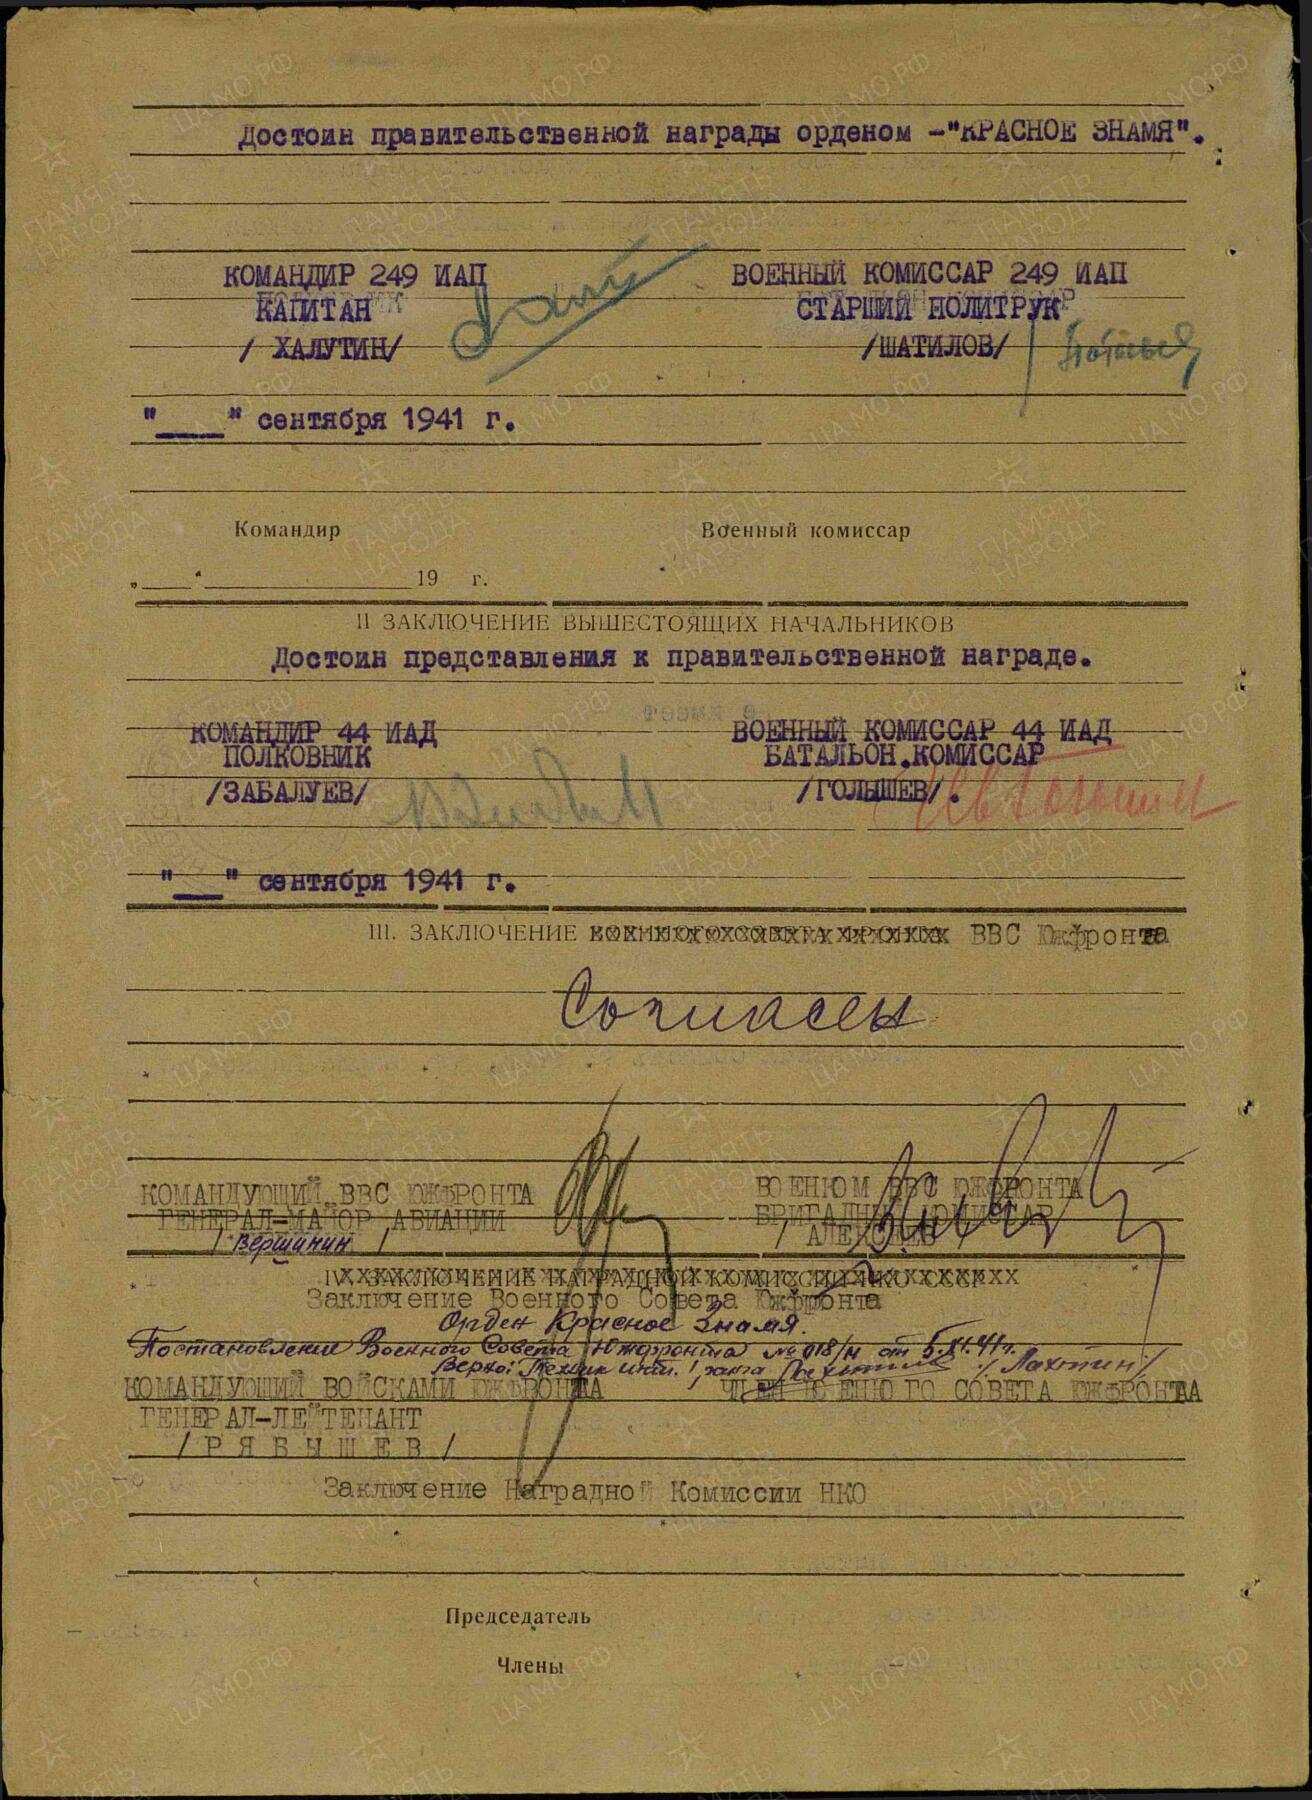 Достоин правительственной награды орденом -"КРАСНОЕ ЗНАМЯ".
КОМАНДИР 249 ИАП
КАПИТАН
/ ХАЛУТИН/
ВОЕННЫЙ КОМИССАР 249 ИАП
СТАРШИЙ ПОЛИТРУК
/ШАТИЛОВ/
"___" сентября 1941 г.
Командир
Военный комиссар
„___“ ____________ 19 г.
II ЗАКЛЮЧЕНИЕ ВЫШЕСТОЯЩИХ НАЧАЛЬНИКОВ
Достоин представления к правительственной награде.
КОМАНДИР 44 ИАД
ПОЛКОВНИК
/ЗАБАЛУЕВ/
ВОЕННЫЙ КОМИССАР 44 ИАД
БАТАЛЬОН.КОМИССАР
/ГОЛЫШЕВ/.
"___" сентября 1941 г.
III. ЗАКЛЮЧЕНИЕ ВОЕННОГО СОВЕТА ФРОНТА ВВС Южфронта
Согласен
КОМАНДУЮЩИЙ ВВС ЮЖФРОНТА
ГЕНЕРАЛ-МАЙОР АВИАЦИИ
/ Вершинин /
ВОЕНКОМ ВВС ЮЖФРОНТА
БРИГАДНЫЙ КОМИССАР
/ АЛЕКСЕЕВ /
IV. ЗАКЛЮЧЕНИЕ НАГРАДНОЙ КОМИССИИ НКО СССР
Заключение Военного Совета Южфронта
Орден Красное Знамя.
Постановление Военного Совета Южфронта № 018/н от 5.XI.41 г.
Верно: Техник инт. 1 ранга /Лахтин/
КОМАНДУЮЩИЙ ВОЙСКАМИ ЮЖФРОНТА
ГЕНЕРАЛ-ЛЕЙТЕНАНТ
/ Р Я Б Ы Ш Е В /
ЧЛЕН ВОЕННОГО СОВЕТА ЮЖФРОНТА
Заключение Наградной Комиссии НКО
Председатель
Члены
ПАМЯТЬ НАРОДА
ЦАМО.РФ